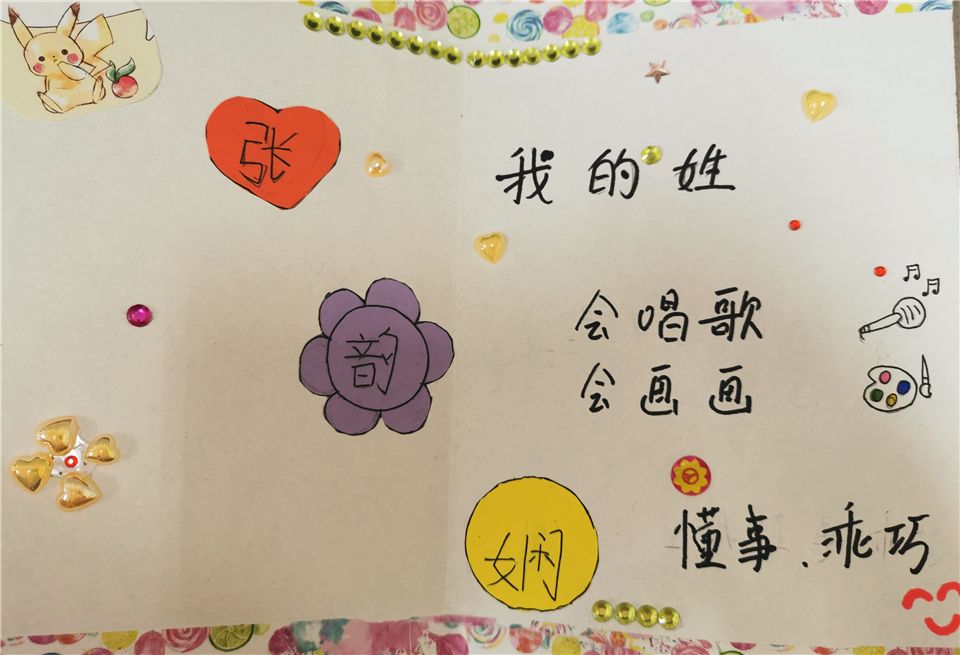 张 我的姓
韵 会唱歌
会画画
娴 懂事、乖巧